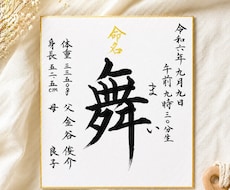 令和六年九月九日
午前九時三〇分生
命名
舞
まい
体重三三五〇g
身長五二.五cm
父 金谷俊介
母 良子